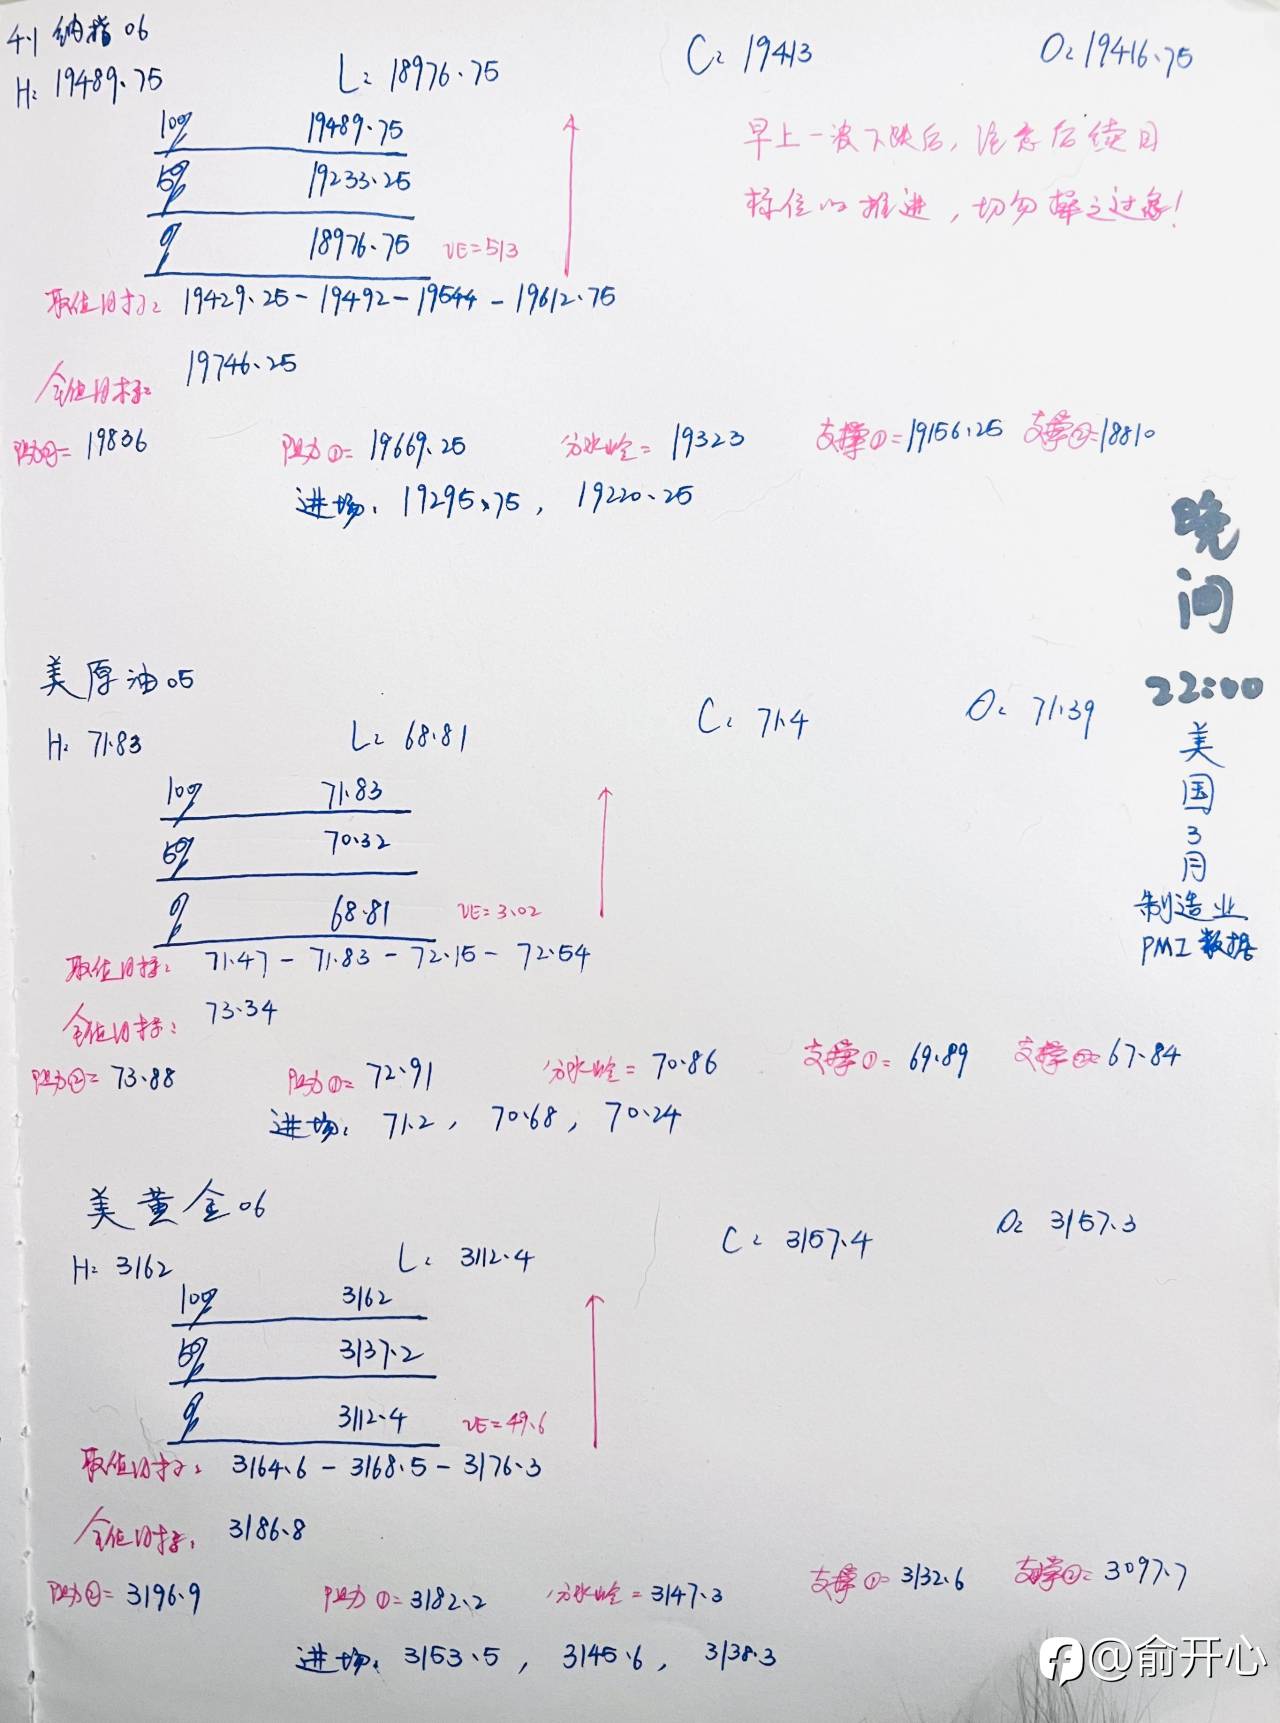 4.1 纳指06
H: 19489.75 L: 18976.75 C: 19413 O: 19416.75
100% 19489.75
50% 19233.25
0% 18976.75 VE=513
早上一波下跌后,注意后续目
标位的推进,切勿操之过急!
取值目标: 19429.25-19492-19544-19612.75
全值目标: 19746.25
阻力②=19836 阻力①=19669.25 分水岭=19323 支撑①=19156.25 支撑②=18810
进场: 19295.75, 19220.25
晚间
22:00
美国3月
制造业
PMI数据
美原油05
H: 71.83 L: 68.81 C: 71.4 O: 71.39
100% 71.83
50% 70.32
0% 68.81 VE=3.02
取值目标: 71.47-71.83-72.15-72.54
全值目标: 73.34
阻力②=73.88 阻力①=72.91 分水岭=70.86 支撑①=69.89 支撑②=67.84
进场: 71.2, 70.68, 70.24
美黄金06
H: 3162 L: 3112.4 C: 3157.4 O: 3157.3
100% 3162
50% 3137.2
0% 3112.4 VE=49.6
取值目标: 3164.6-3168.5-3176.3
全值目标: 3186.8
阻力②=3196.9 阻力①=3182.2 分水岭=3147.3 支撑①=3132.6 支撑②=3097.7
进场: 3153.5, 3145.6, 3138.3
@俞开心